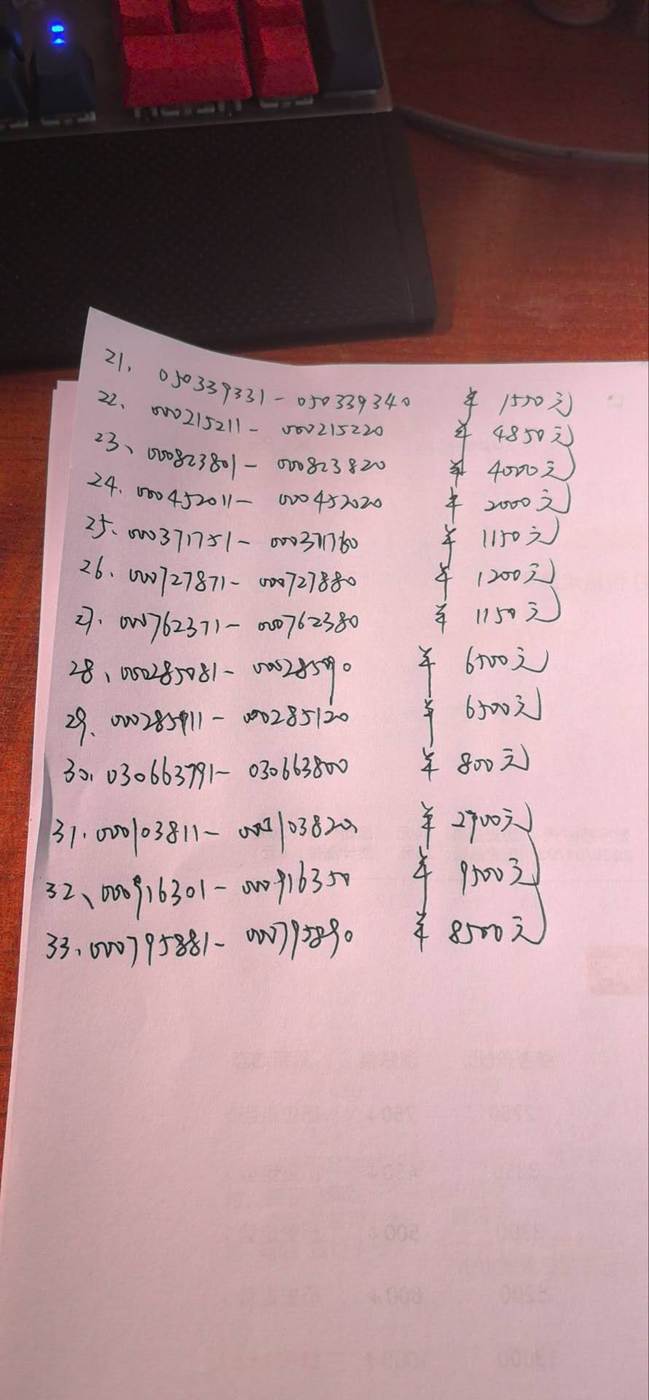 21, 050339331- 050339340 ¥ 1550元
22. 000215211- 000215220 ¥ 4850元
23、000823801- 000823820 ¥ 4000元
24. 000452011- 000452020 ¥ 2000元
25. 000371751- 000371760 ¥ 1150元
26. 000727871- 000727880 ¥ 1200元
27. 000762371- 000762380 ¥ 1150元
28、000285081- 000285090 ¥ 6500元
29. 000285111- 000285120 ¥ 6500元
30. 030663791- 030663800 ¥ 800元
31. 000103811- 000103820 ¥ 2900元
32、000916301- 000916350 ¥ 9500元
33. 000795881- 000795890 ¥ 8500元